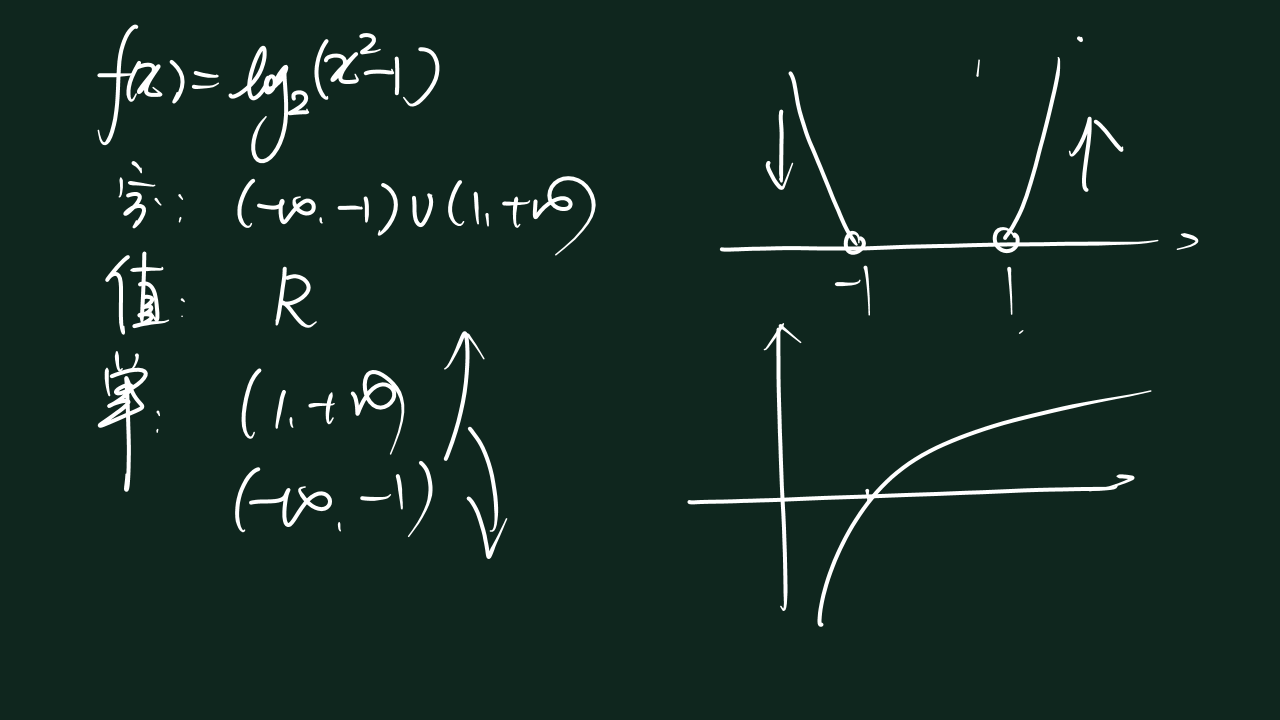 f(x)=log₂(x²-1)
定: (-∞,-1)∪(1,+∞)
值: R
单: (1,+∞)
(-∞,-1)
-1 1